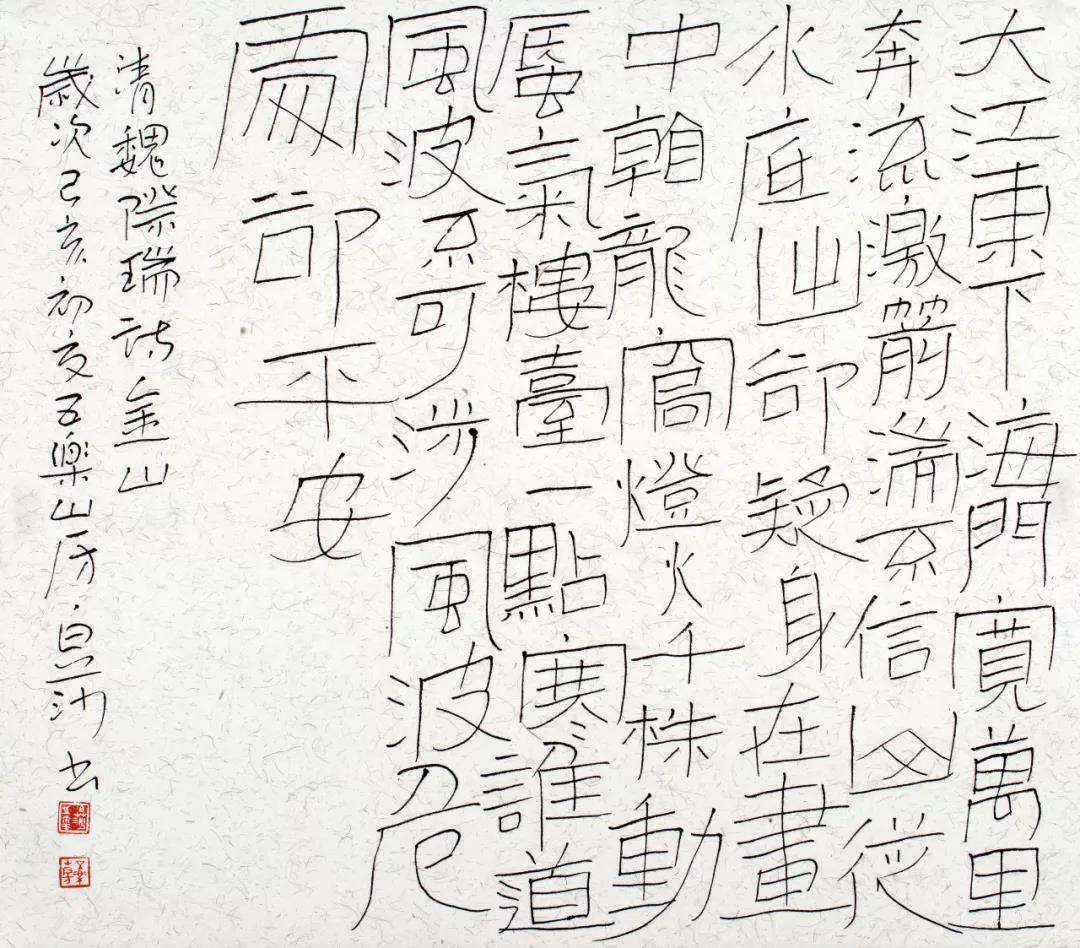 大江東下海門寬萬里
奔流激箭湍不信山從
水底出卻疑身在畫
中看龍宮燈火千株動
蜃氣樓臺一點寒誰道
風波不可涉風波危
處卻平安
清魏際瑞詩金山
歲次己亥初夏五樂山房書